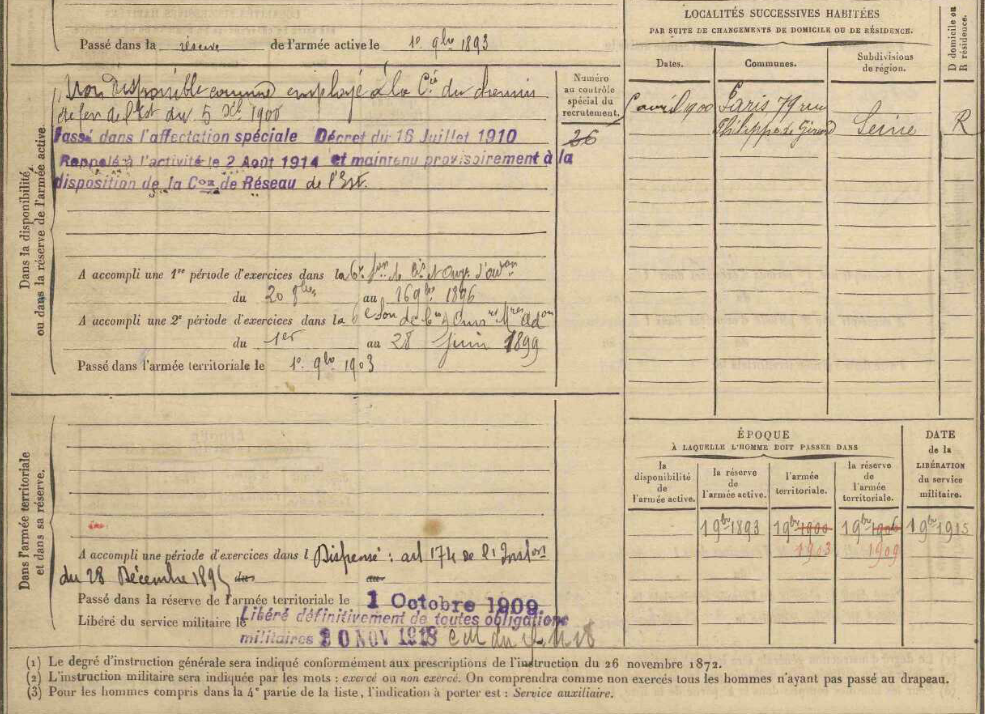 Passé dans la réserve de l'armée active le 1er 9bre 1893
Dans la disponibilité
ou dans la réserve de l'armée active.
Non disponible comme employé à la Cie du chemin
de fer de l'Est du 5 Xbre 1900
Passé dans l'affectation spéciale Décret du 16 Juillet 1910
Rappelé à l'activité le 2 Août 1914 et maintenu provisoirement à la
disposition de la Con de Réseau de l'Est.
Numéro
au contrôle
spécial du
recrutement.
26
A accompli une 1re période d'exercices dans la 6e Son de
du 20 8bre au 16 9bre 1896
A accompli une 2e période d'exercices dans la 6e Son de
du 1er au 28 Juin 1899
Passé dans l'armée territoriale le 1er 9bre 1903
LOCALITÉS SUCCESSIVES HABITÉES
PAR SUITE DE CHANGEMENTS DE DOMICILE OU DE RÉSIDENCE.
D domicile ou
R résidence.
Dates. Communes. Subdivisions
de région.
avril 1900 Paris 79 rue
Philippe de Girard Seine R
Dans l'armée territoriale
et dans sa réserve.
A accompli une période d'exercices dans l Dispensé : art 174 de l'Inston
du 28 Décembre 1895 au
Passé dans la réserve de l'armée territoriale le 1 Octobre 1909
Libéré du service militaire le Libéré définitivement de toutes obligations
militaires NOV 1918
ÉPOQUE
À LAQUELLE L'HOMME DOIT PASSER DANS
DATE
de la
LIBÉRATION
du service
militaire.
la
disponibilité
de
l'armée active.
la réserve
de
l'armée active.
l'armée
territoriale.
la réserve
de
l'armée
territoriale.
1 9bre 1893 1 9bre 1900 1 9bre 1906 1 9bre 1915
1903 1909
(1) Le degré d'instruction générale sera indiqué conformément aux prescriptions de l'instruction du 26 novembre 1872.
(2) L'instruction militaire sera indiquée par les mots : exercé ou non exercé. On comprendra comme non exercés tous les hommes n'ayant pas passé au drapeau.
(3) Pour les hommes compris dans la 4e partie de la liste, l'indication à porter est : Service auxiliaire.